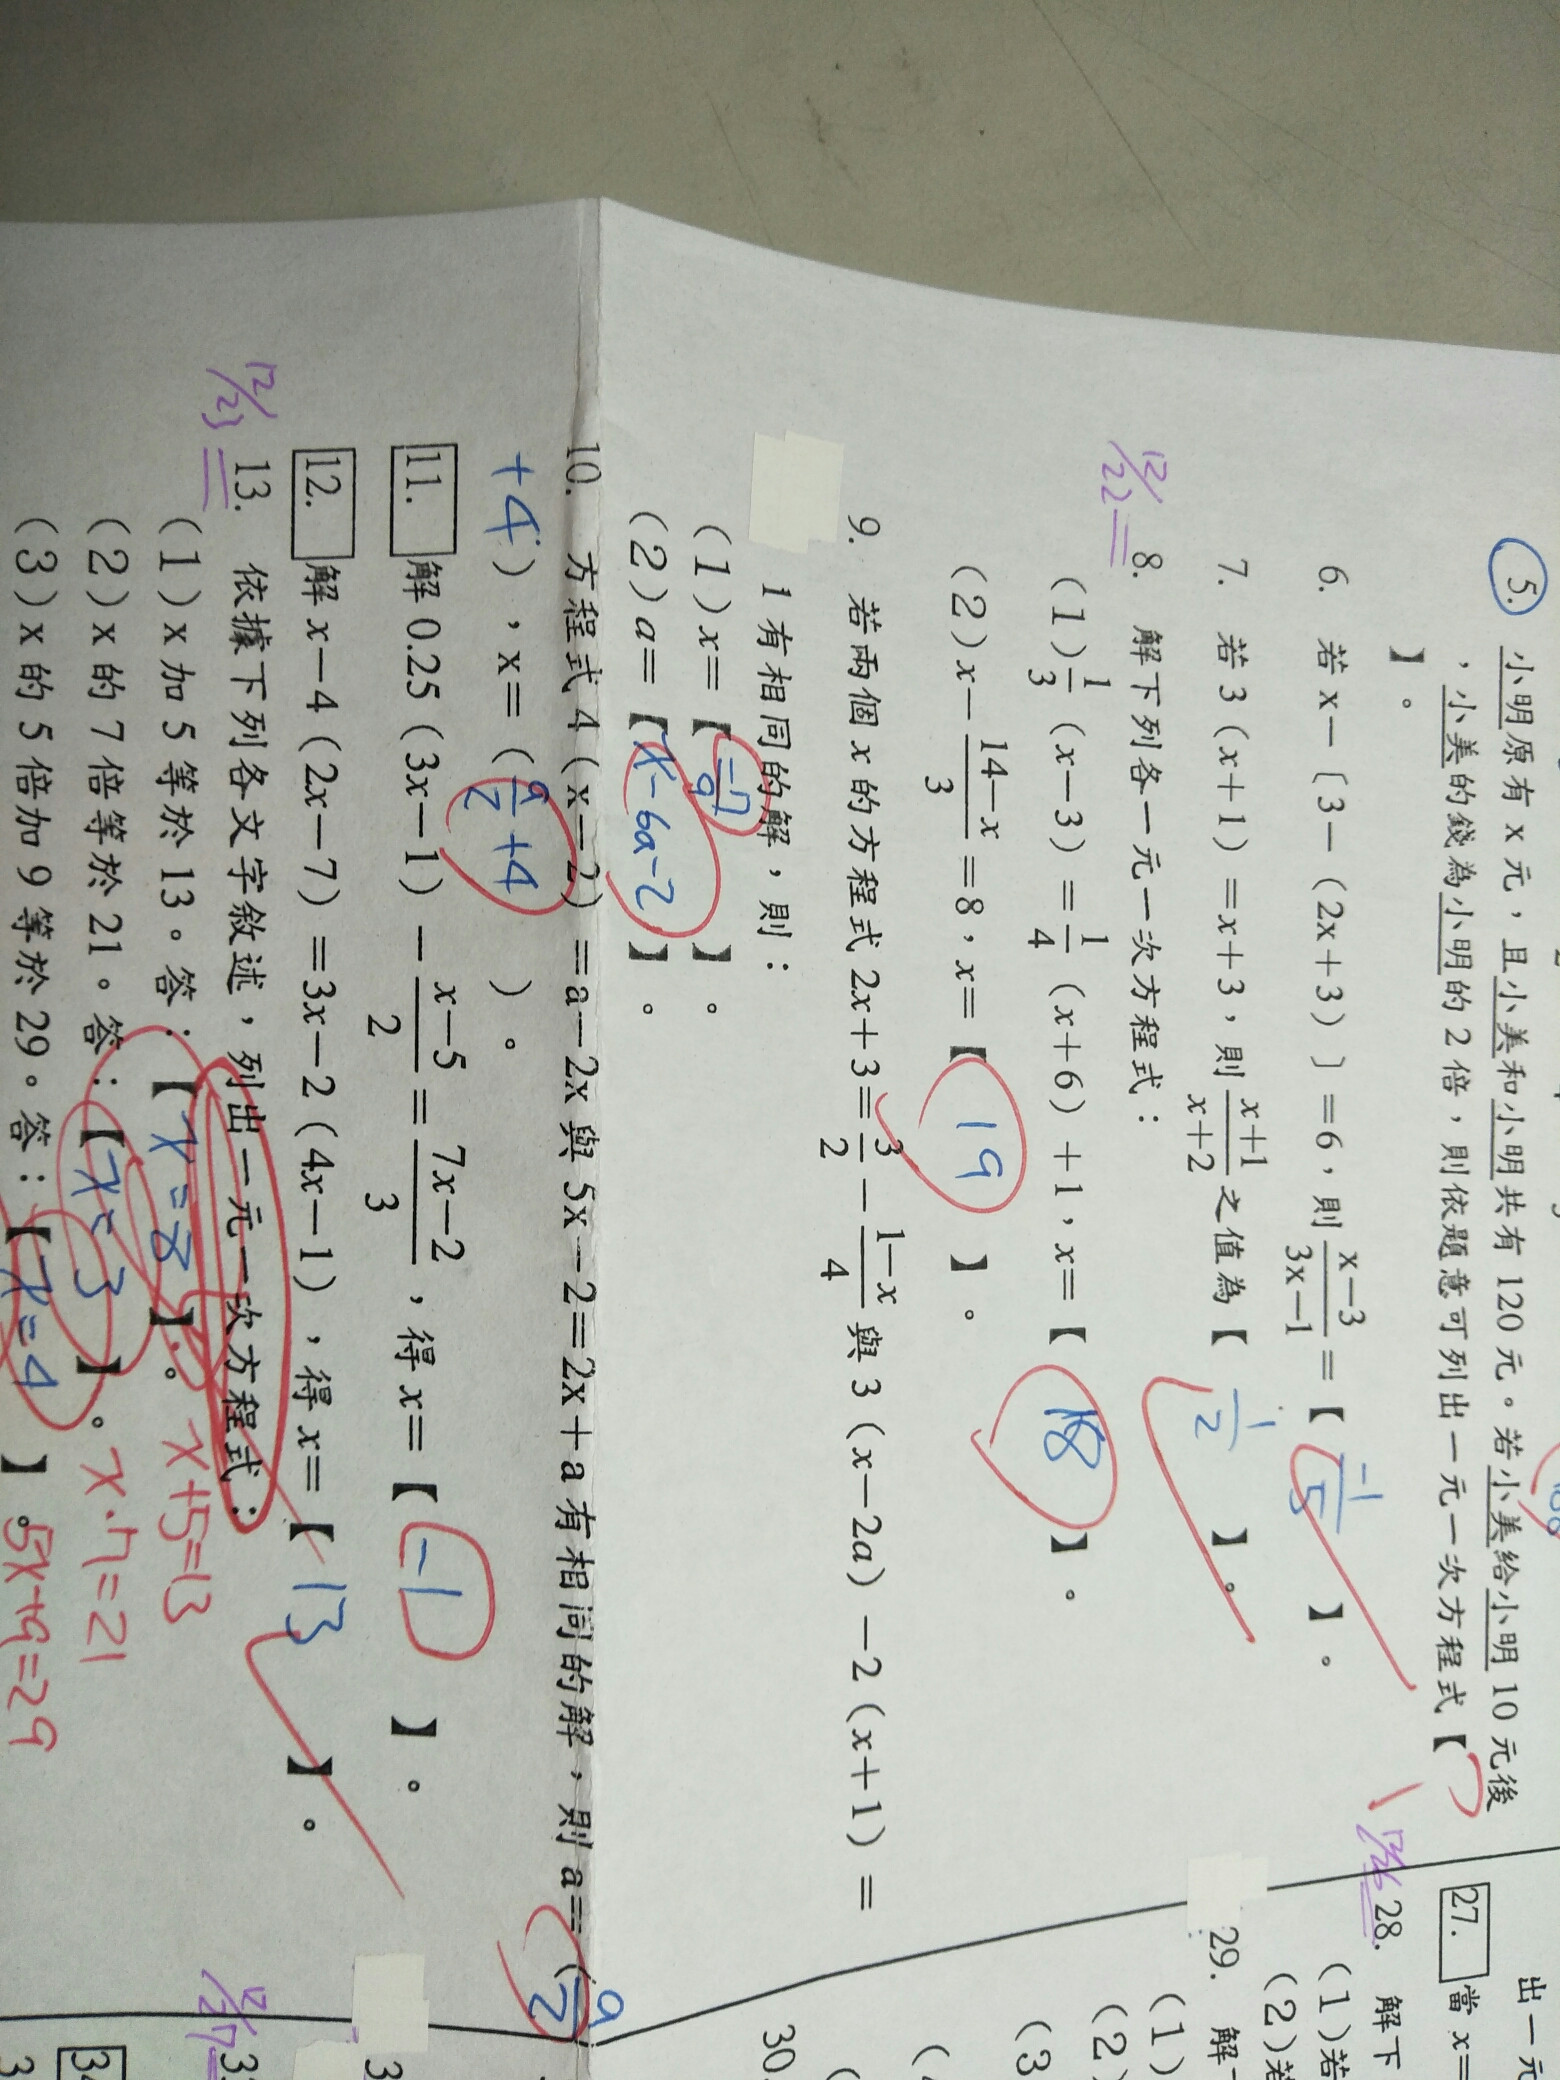 5. 小明原有x元，且小美和小明共有120元。若小美給小明10元後
，小美的錢為小明的2倍，則依題意可列出一元一次方程式【
】。
6. 若x－〔3－(2x＋3)〕＝6，則 x－3/3x－1 ＝【 -1/5 】。
7. 若3(x＋1)＝x＋3，則 x＋1/x＋2 之值為【 1/2 】。
12/22
8. 解下列各一元一次方程式：
(1) 1/3 (x－3)＝1/4 (x＋6)＋1，x＝【 18 】。
(2) x－ 14－x/3 ＝8，x＝【 19 】。
9. 若兩個x的方程式2x＋3＝ 3/2 － 1－x/4 與3(x－2a)－2(x＋1)＝
1有相同的解，則：
(1) x＝【 -7/9 】。
(2) a＝【 x-6a-2 】。
10. 方程式4(x－2)＝a－2x與5x－2＝2x＋a有相同的解，則a＝( a/2
+4 )，x＝( a/2 +4 )。
11. 解0.25(3x－1)－ x－5/2 ＝ 7x－2/3 ，得x＝【 -1 】。
12. 解x－4(2x－7)＝3x－2(4x－1)，得x＝【 13 】。
12/23
13. 依據下列各文字敘述，列出一元一次方程式：
(1) x加5等於13。答：【 x=8 】。 x+5=13
(2) x的7倍等於21。答：【 x=3 】。 x·7=21
(3) x的5倍加9等於29。答：【 x=4 】。 5x+9=29
出一元
27. 當x＝
28. 解下
(1) 若
(2) 若
29. 解
(1)
(2)
(3
(
30.
(
12/27